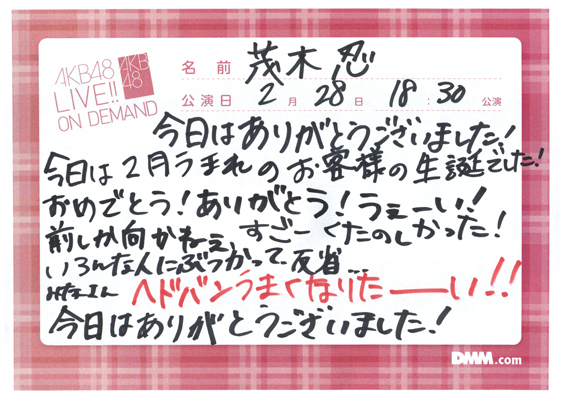 AKB48
LIVE!!
ON DEMAND
AKB
48
名前 茂木忍
公演日 2月28日 18:30公演
今日はありがとうございました!
今日は2月うまれのお客様の生誕でした!
おめでとう!ありがとう!うぇーい!
前しか向かねぇ、すごーくたのしかった!
いろんな人にぶつかって反省…
みなさん ヘドバンうまくなりたーーい!!
今日はありがとうございました!
DMM.com